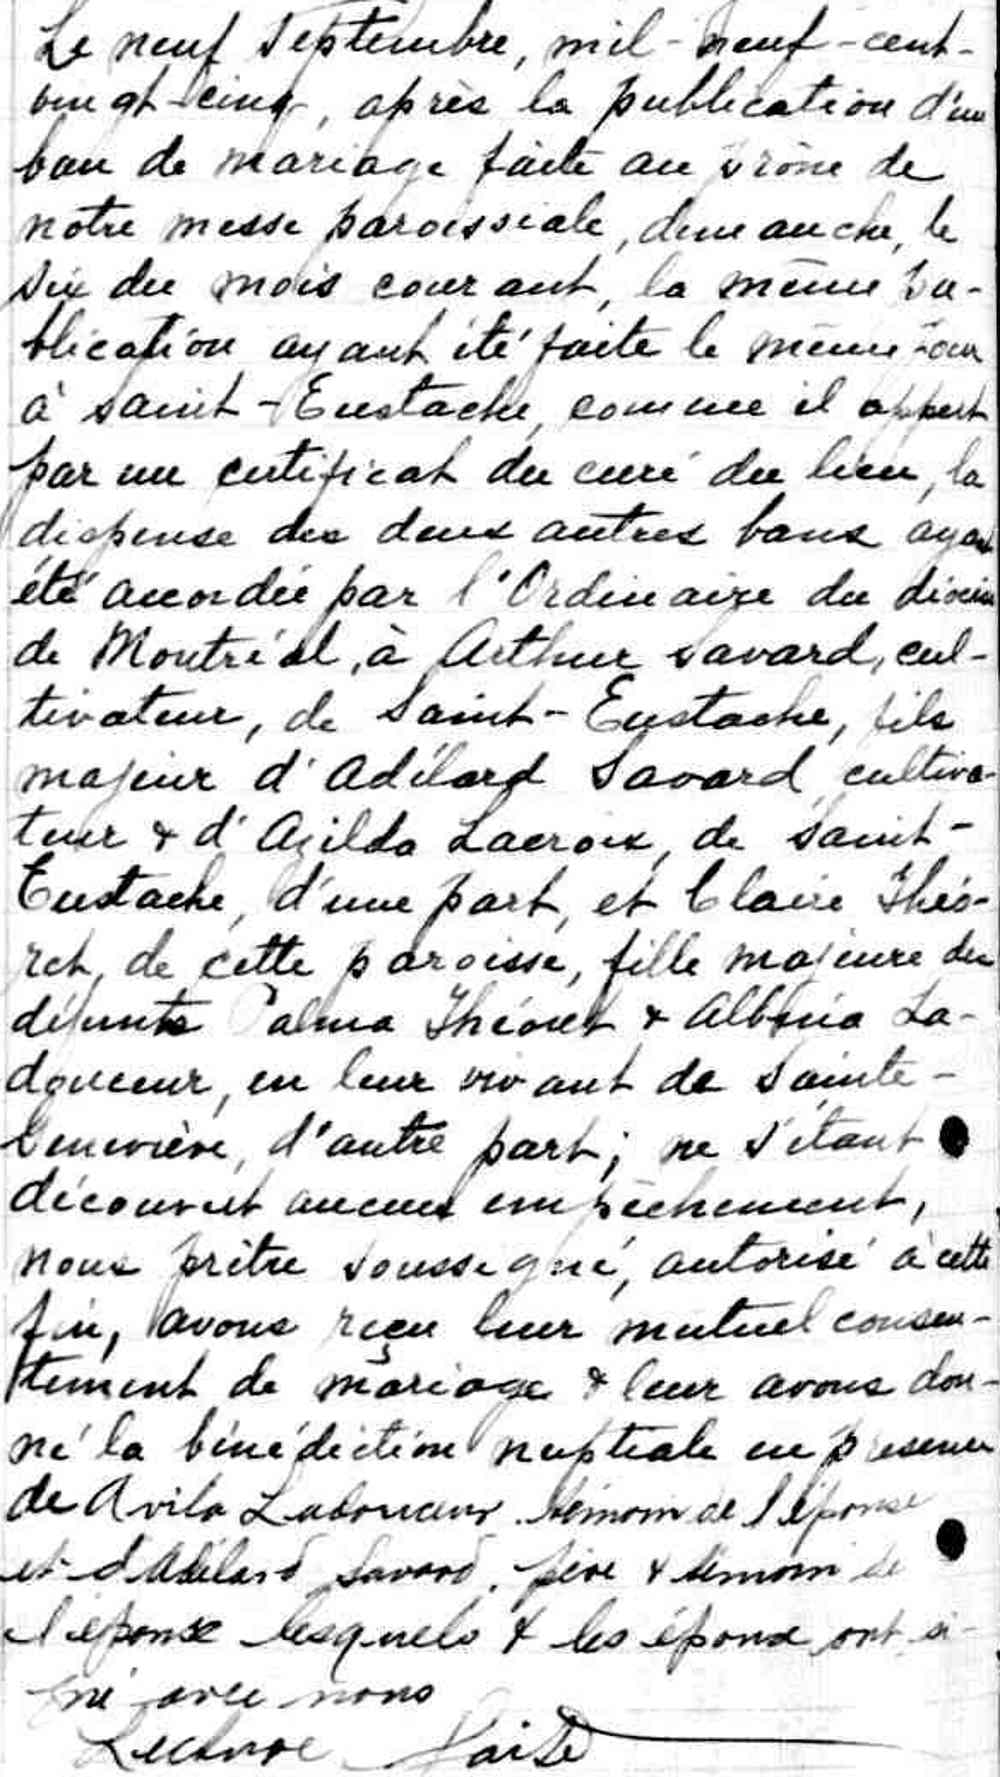 Le neuf Septembre, mil-neuf-cent-
vingt-cinq, après la publication d'un
ban de mariage faite au prône de
notre messe paroissiale, dimanche, le
six du mois courant, la même pu-
blication ayant été faite le même jour
à Saint-Eustache, comme il appert
par un certificat du curé du lieu, la
dispense des deux autres bans ayant
été accordée par l'Ordinaire du diocèse
de Montréal, à Arthur Savard, cul-
tivateur, de Saint-Eustache, fils
majeur d'Adélard Savard, cultiva-
teur & d'Azilda Lacroix, de Saint-
Eustache, d'une part, et Claire Théo-
ret, de cette paroisse, fille majeure des
défunts Palma Théoret & Albina La-
douceur, en leur vivant de Sainte-
Geneviève, d'autre part; ne s'étant
découvert aucun empêchement,
nous prêtre soussigné, autorisé à cette
fin, avons reçu leur mutuel consen-
tement de mariage & leur avons don-
né la bénédiction nuptiale en présence
de Avila Ladouceur témoin de l'épouse
et d'Adélard Savard, père & témoin de
l'époux lesquels & les époux ont si-
gné avec nous
Lecture faite